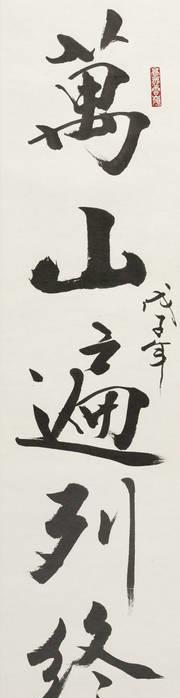 萬山遍列終
戊子年